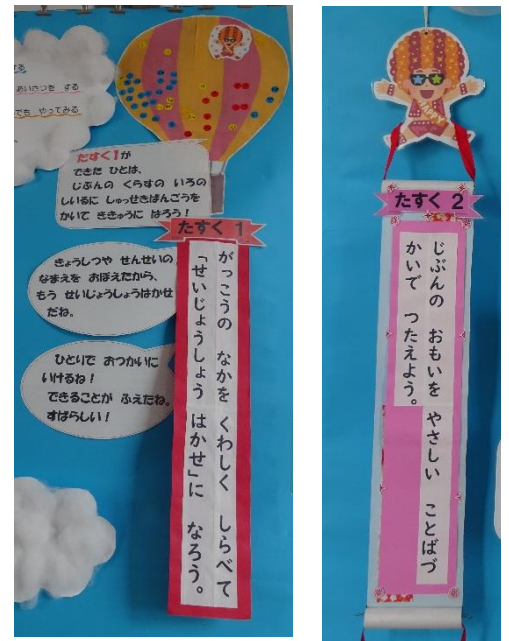 する
あいさつを する
でも やってみる
たすく1が
できた ひとは、
じぶんの くらすの いろの
しいるに しゅっせきばんごうを
かいて ききゅうに はろう!
たすく 1
がっこうの なかを くわしく しらべて
「せいじょうしょう はかせ」に なろう。
きょうしつや せんせいの
なまえを おぼえたから、
もう せいじょうしょうはかせ
だね。
ひとりで おつかいに
いけるね!
できることが ふえたね。
すばらしい!
たすく 2
じぶんの おもいを やさしい ことばづ
かいで つたえよう。